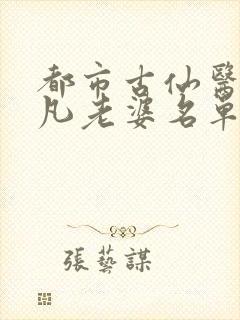 都市古仙醫
凡老婆名單
張藝謀